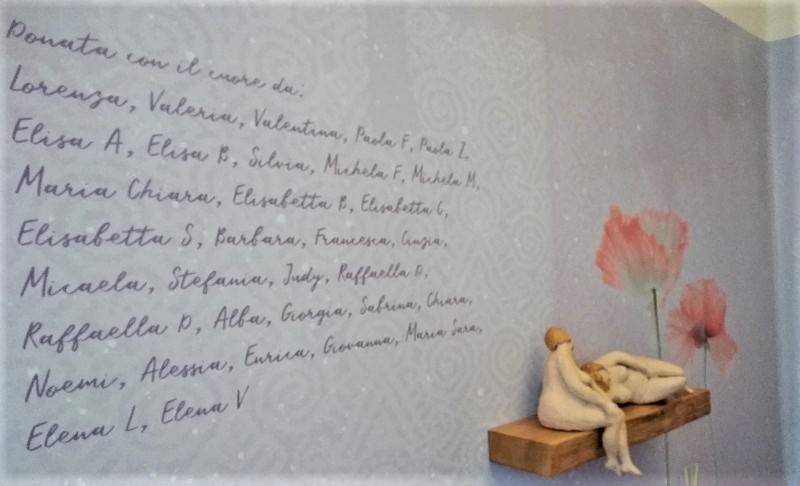 Donata con il cuore da:
Lorenza, Valeria, Valentina, Paola F, Paola Z,
Elisa A, Elisa B, Silvia, Michela F, Michela M,
Maria Chiara, Elisabetta B, Elisabetta C,
Elisabetta S, Barbara, Francesca, Cinzia,
Micaela, Stefania, Judy, Raffaella D,
Raffaella D, Alba, Giorgia, Sabrina, Chiara,
Noemi, Alessia, Enrica, Giovanna, Maria Sara,
Elena L, Elena V